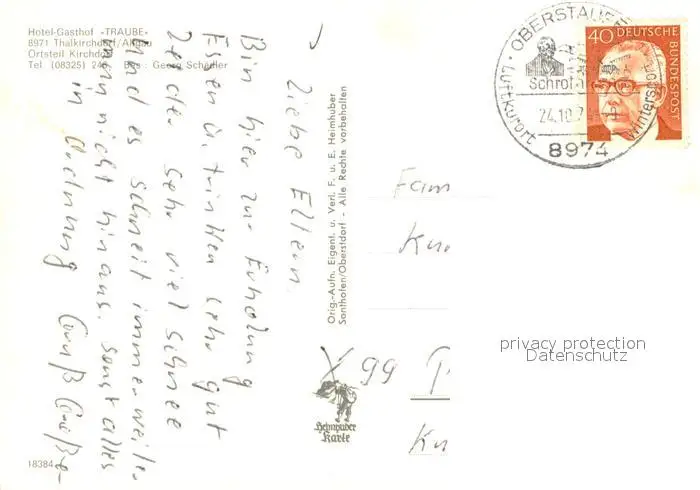 Hotel-Gasthof »TRAUBE«
8971 Thalkirchdorf/Allgäu
Ortsteil Kirchdorf
Tel (08325) 24 Bes : Georg Schädler
Liebe Eltern.
Bin hier zur Erholung
Essen u. trinken sehr gut
Leider sehr viel Schnee
und es schneit immer weiter
kann nicht hinaus. sonst alles
in Ordnung Gruß
Orig.-Aufn. Eigent. u. Verl. F. u. E. Heimhuber
Sonthofen/Oberstdorf - Alle Rechte vorbehalten
Heimhuber
Karte
18384
OBERSTAUFEN
Schroth
Luftkurort
Wintersport
24.10.7
8974
40 DEUTSCHE
BUNDESPOST
Fam
X 99
privacy protection
Datenschutz